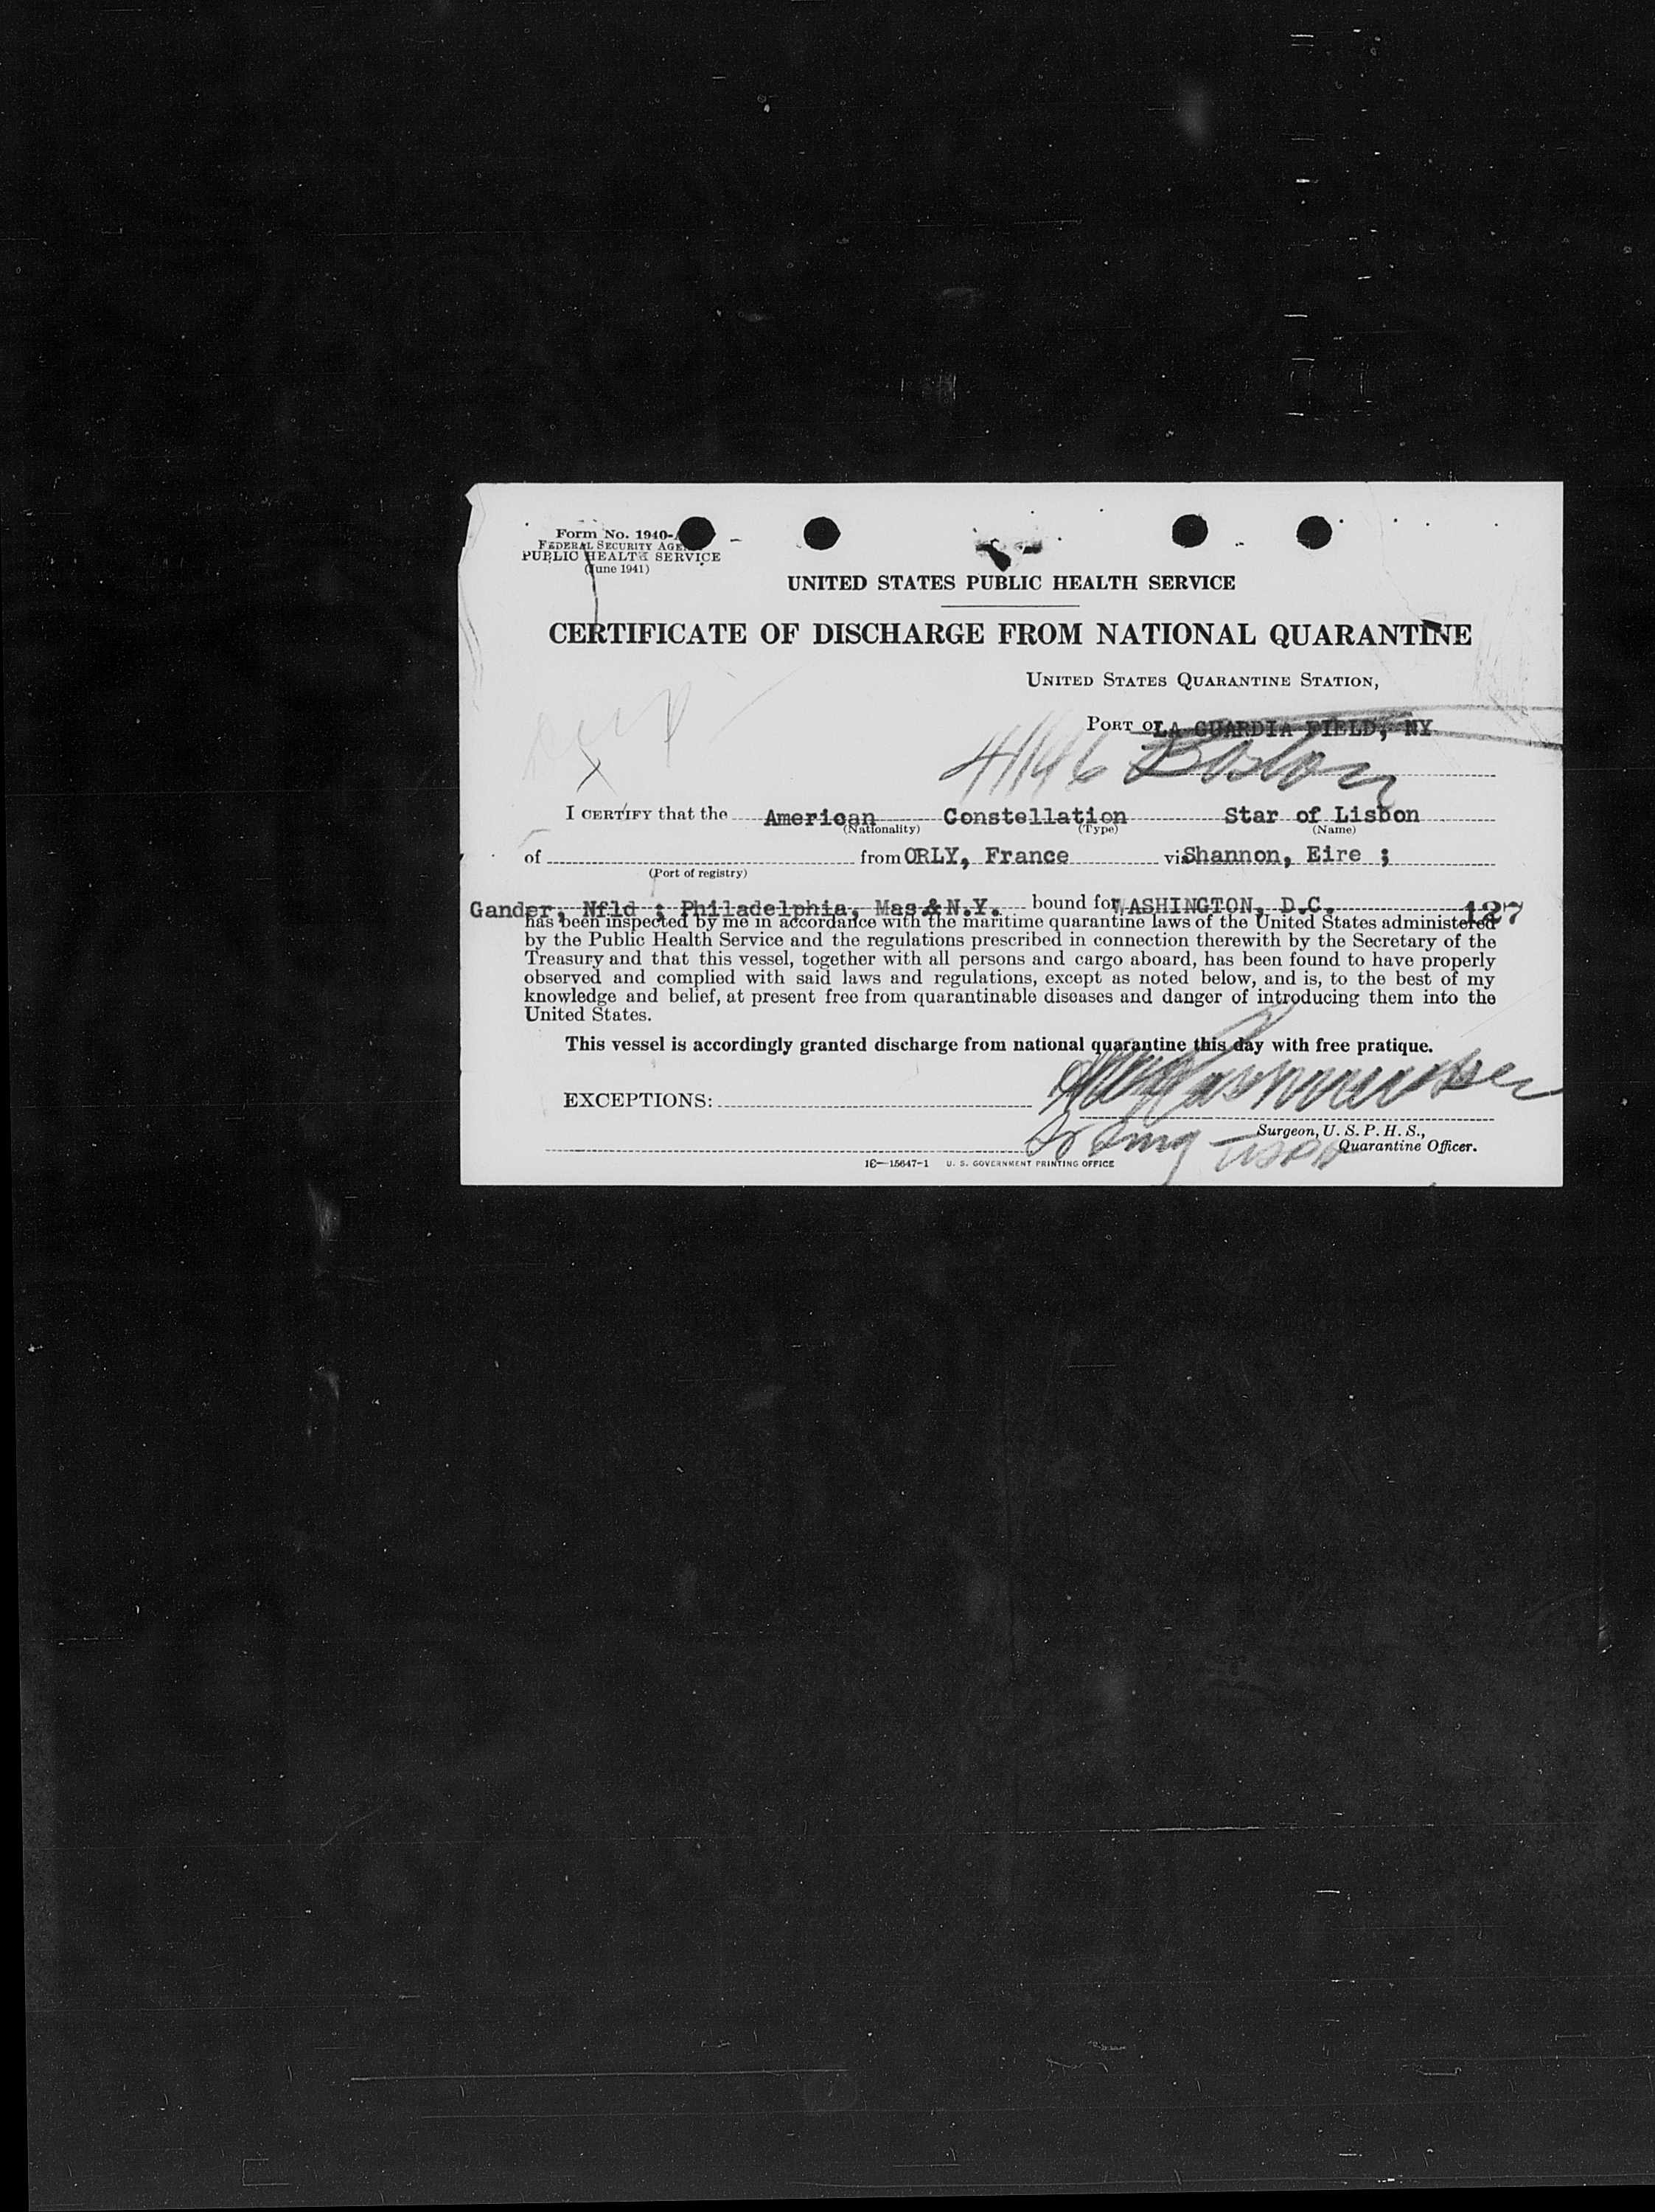 Form No. 1940-
FEDERAL SECURITY AGE
PUBLIC HEALTH SERVICE
(June 1941)
UNITED STATES PUBLIC HEALTH SERVICE
CERTIFICATE OF DISCHARGE FROM NATIONAL QUARANTINE
UNITED STATES QUARANTINE STATION,
PORT OF LA GUARDIA FIELD, NY
Boston
I CERTIFY that the American Constellation Star of Lisbon
(Nationality) (Type) (Name)
of from ORLY, France via Shannon, Eire ;
(Port of registry)
Gander, Nfld ; Philadelphia, Mas & N.Y. bound for WASHINGTON, D.C. 127
has been inspected by me in accordance with the maritime quarantine laws of the United States administered
by the Public Health Service and the regulations prescribed in connection therewith by the Secretary of the
Treasury and that this vessel, together with all persons and cargo aboard, has been found to have properly
observed and complied with said laws and regulations, except as noted below, and is, to the best of my
knowledge and belief, at present free from quarantinable diseases and danger of introducing them into the
United States.
This vessel is accordingly granted discharge from national quarantine this day with free pratique.
EXCEPTIONS:
Surgeon, U. S. P. H. S.,
Quarantine Officer.
16—15647-1 U. S. GOVERNMENT PRINTING OFFICE